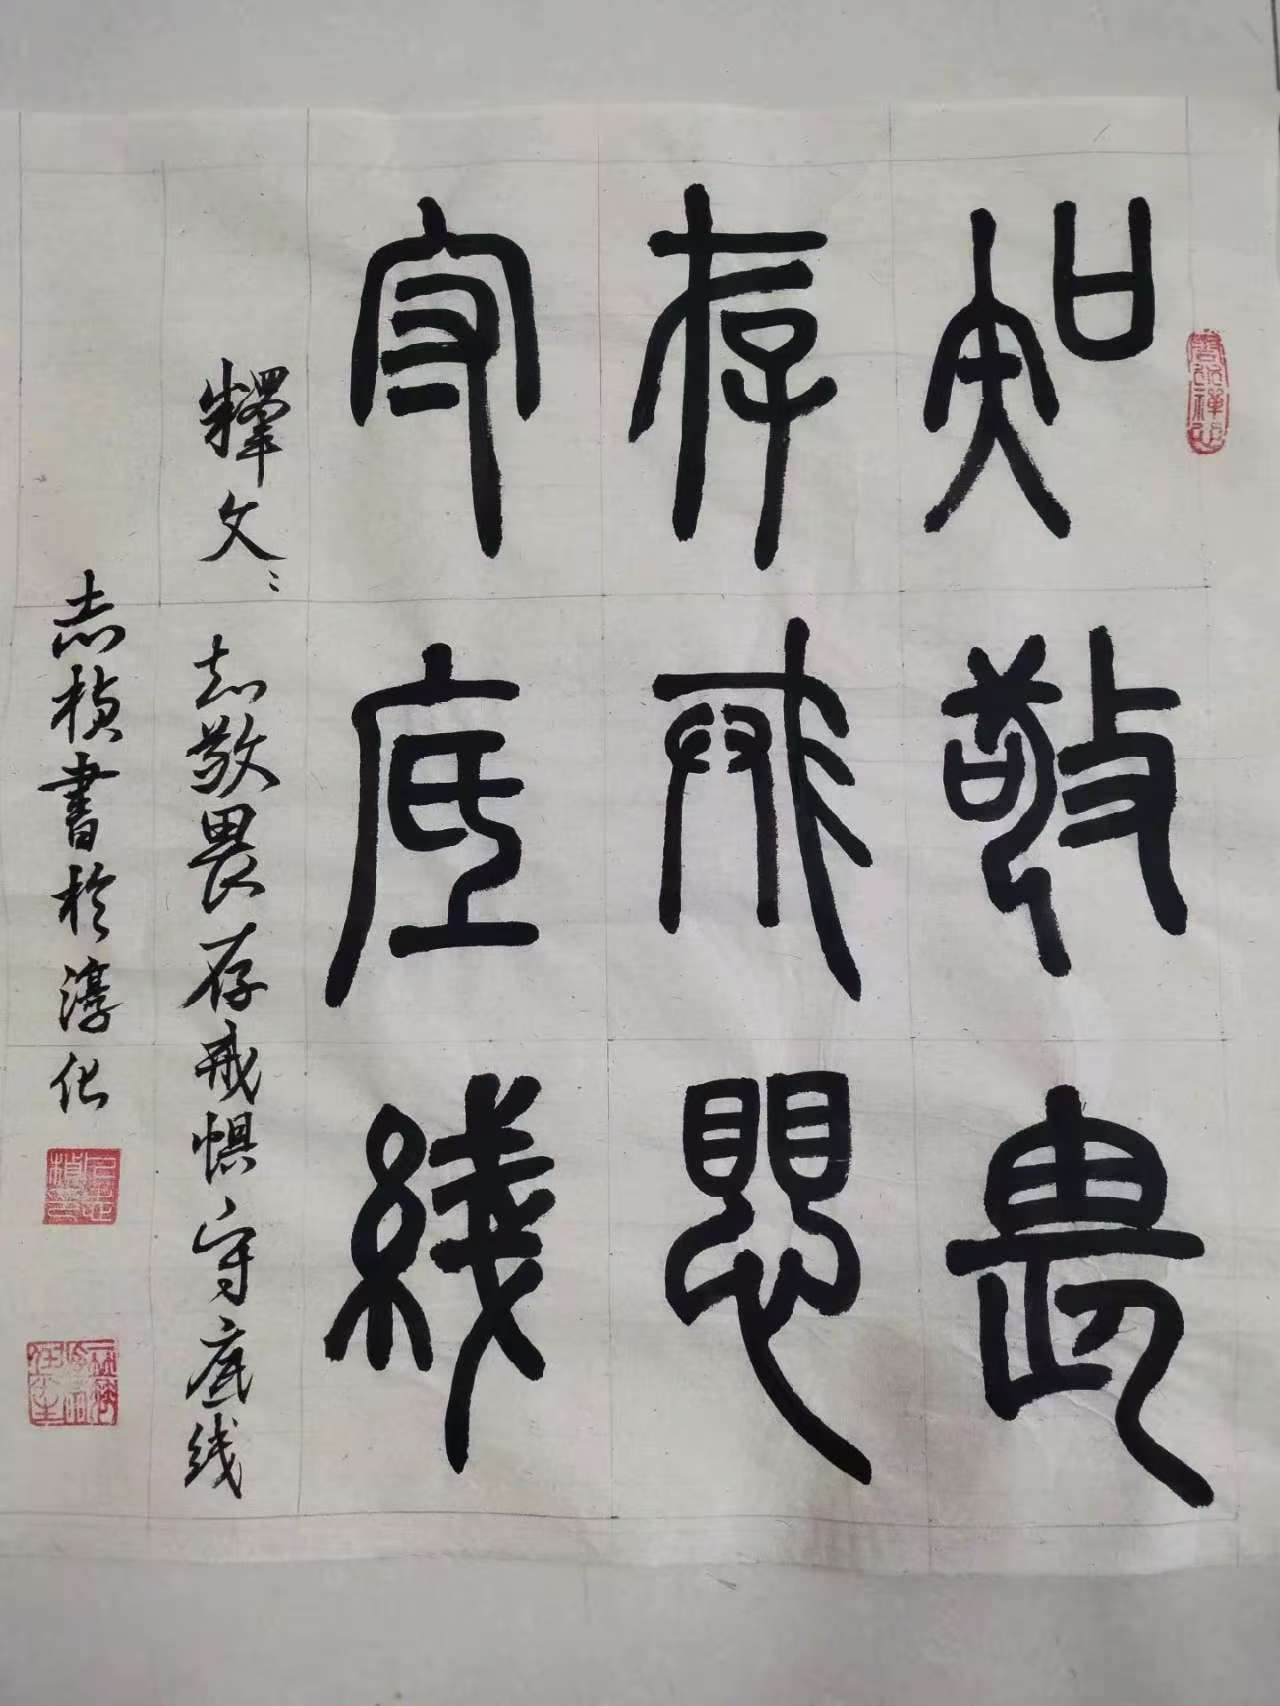 知敬畏
存戒惧
守底线
释文：知敬畏存戒惧守底线
志桢書於淳化